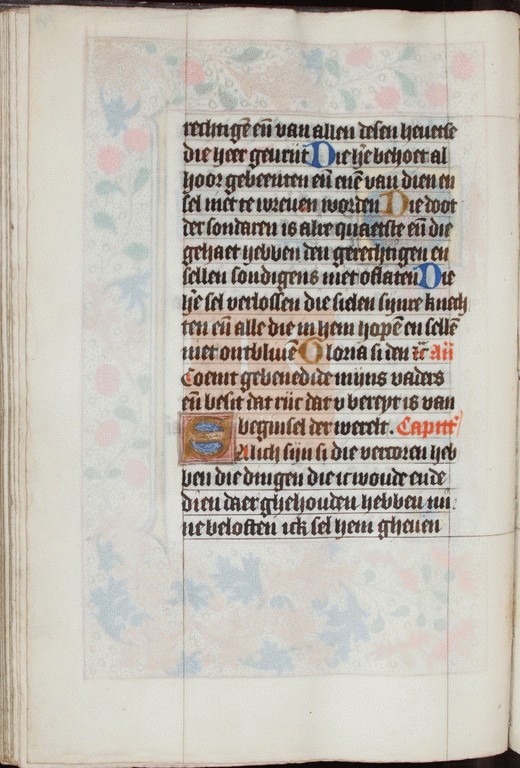 rechtigē eñ van allen desen heuetse
die heer geurijt Die h̄e behoet al
hoor gebeenten eñ enē van dien en
sel niet te wreuen worden Die doot
der sondaren is alre quaetste eñ die
gehaet hebben den gerechtigen en
sellen sondigens niet oflaten Die
h̄e sel verlossen die sielen synre knech
ten eñ alle die in hem hopē en sellē
niet ontbliuē Gloria si den ⁊c̄ Añ
Coemt gebenedide mijns vaders
eñ besit dat rijc dat v bereyt is van
beginsel der werelt. Capitt̄
Salich sijn si die vercoren heb
ben die dingen die ic woude ende
dien daer ghehouden hebben mi
ne beloften ick sel hem gheuen